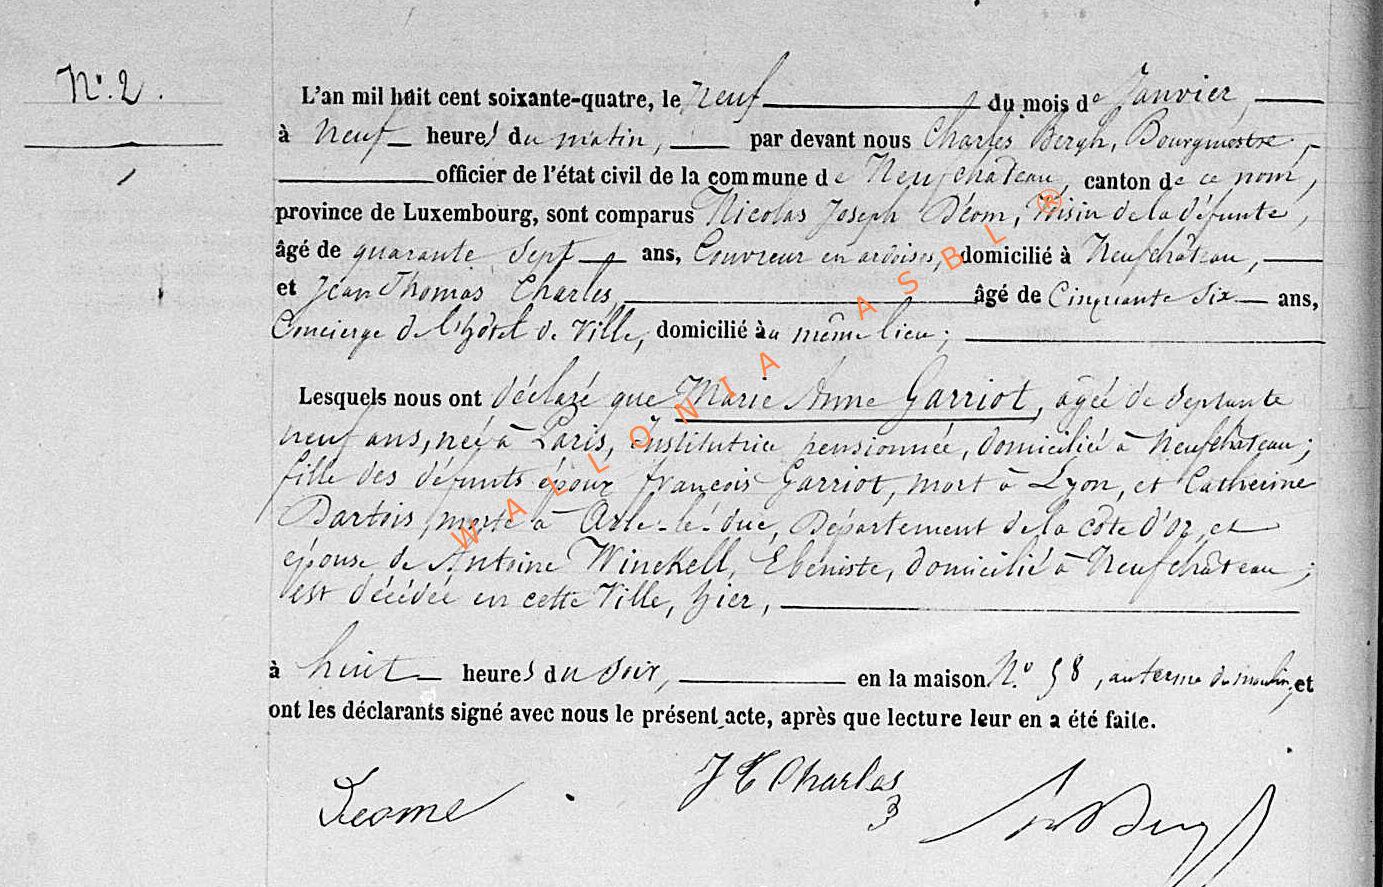 N° 2.
L'an mil huit cent soixante-quatre, le neuf du mois de Janvier,
à neuf heures du matin, par devant nous Charles Bergh, Bourgmestre,
officier de l'état civil de la commune de Neufchâteau, canton de ce nom,
province de Luxembourg, sont comparus Nicolas Joseph Déom, Voisin de la défunte,
âgé de quarante sept ans, Couvreur en ardoises, domicilié à Neufchâteau,
et Jean Thomas Charles, âgé de Cinquante Six ans,
Concierge de l'hôtel de Ville, domicilié au même lieu;
Lesquels nous ont déclaré que Marie Anne Garriot, âgée de septante
neuf ans, née à Paris, Institutrice pensionnée, domiciliée à Neufchâteau;
fille des défunts époux François Garriot, mort à Lyon, et Catherine
Dartois, morte à Osle-le-duc, Département de la côte d'or, et
épouse de Antoine Winckell, Ebéniste, domicilié à Neufchâteau;
est décédée en cette Ville, hier,
à huit heures du soir, en la maison N.° 58, au terme du moulin, et
ont les déclarants signé avec nous le présent acte, après que lecture leur en a été faite.
Deome
J T Charles
WALLONIA ASBL ®